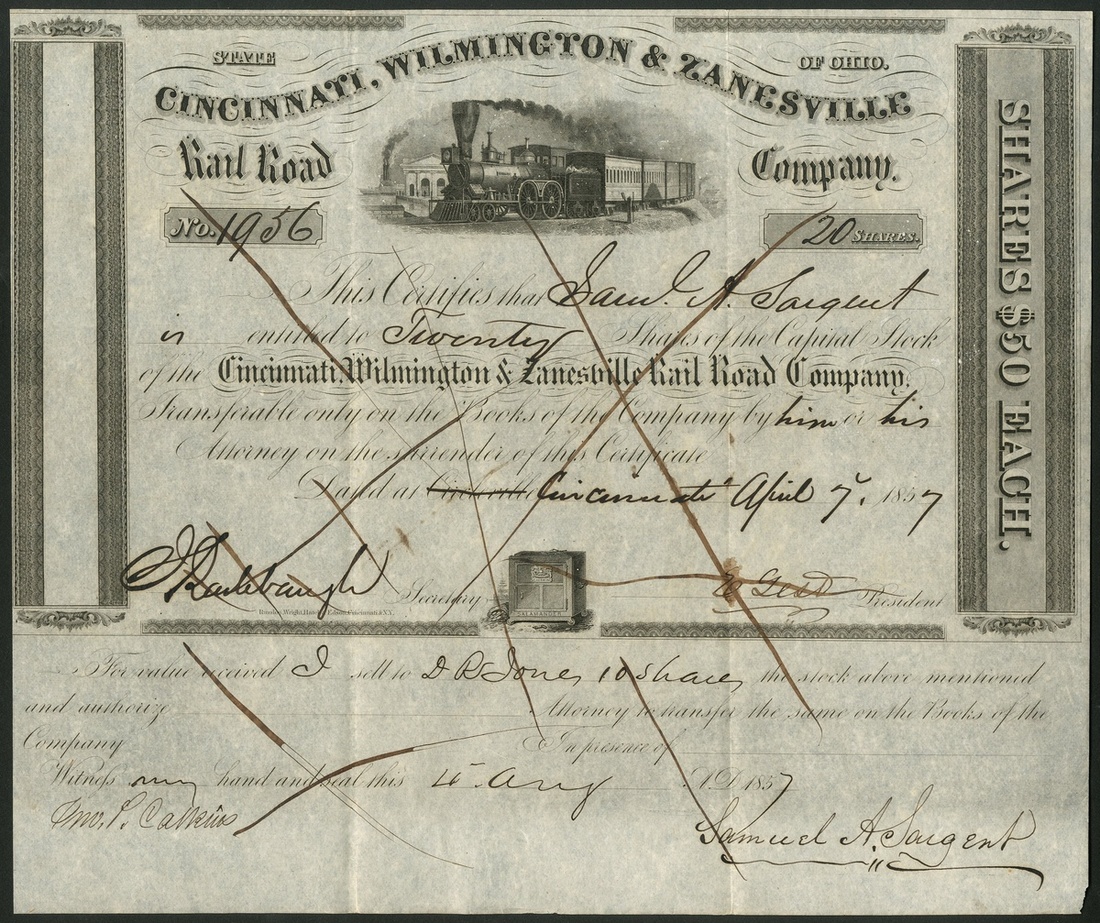 STATE OF OHIO.
CINCINNATI, WILMINGTON & ZANESVILLE
Rail Road Company.
No. 1956 20 SHARES.
This Certifies that Saml. A. Sargent
is entitled to Twenty Shares of the Capital Stock
of the Cincinnati, Wilmington & Zanesville Rail Road Company,
Transferable only on the Books of the Company by him or his
Attorney on the surrender of this Certificate
Dated at Cincinnati April 7. 1857
Secretary President
SALAMANDER
SHARES $50 EACH.
For value received I sell to D R Jones 10 Shares the stock above mentioned
and authorize Attorney to transfer the same on the Books of the
Company In presence of
Witness my hand and seal this 4 Aug A.D. 1857
Jno. P. Calkins
Samuel A. Sargent